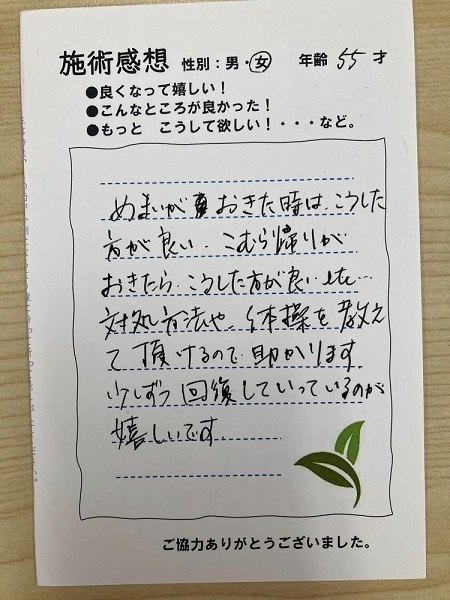 施術感想 性別：男・女 年齢 55 才
●良くなって嬉しい！
●こんなところが良かった！
●もっと こうして欲しい！・・・など。
めまいが おきた時は、こうした
方が良い、こむら帰りが
おきたら、こうした方が良い etc…
対処方法や、体操を教え
て頂けるので助かります
少しずつ回復していっているのが
嬉しいです
ご協力ありがとうございました。